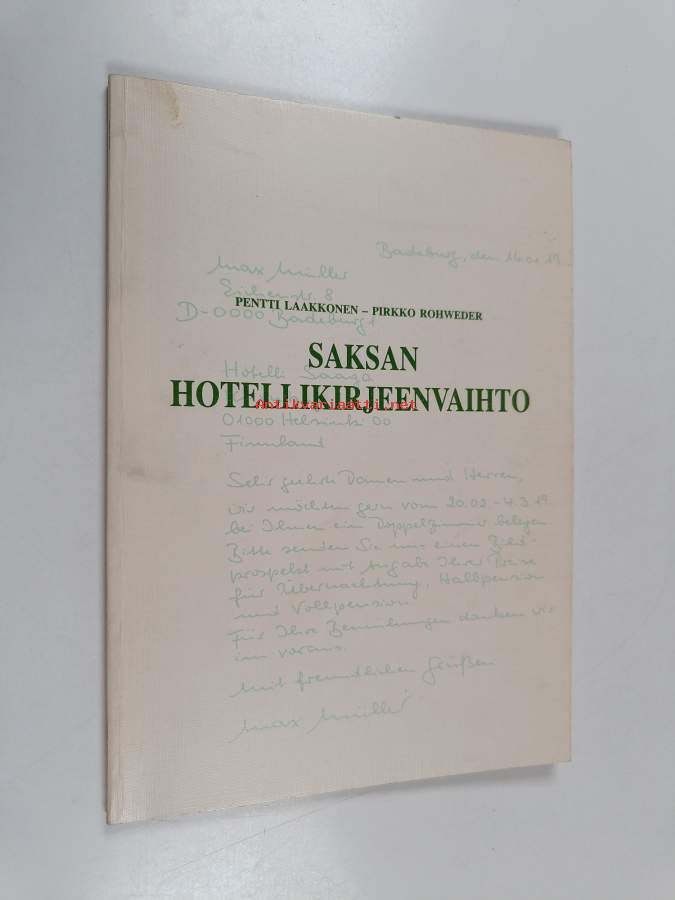 Badeburg, den 16.01.19
Max Müller
Eichenstr. 8
PENTTI LAAKKONEN – PIRKKO ROHWEDER
D-0000 Badeburg 1
SAKSAN
Hotelli Saaga
HOTELLIKIRJEENVAIHTO
antikvariaatti.net
01000 Helsinki 00
Finnland
Sehr geehrte Damen und Herren,
wir möchten gern vom 20.02.-4.3.19
bei Ihnen ein Doppelzimmer belegen.
Bitte senden Sie uns einen Bild-
prospekt mit Angabe Ihrer Preise
für Übernachtung, Halbpension
und Vollpension.
Für Ihre Bemühungen danken wir
im voraus.
Mit freundlichen Grüßen
Max Müller